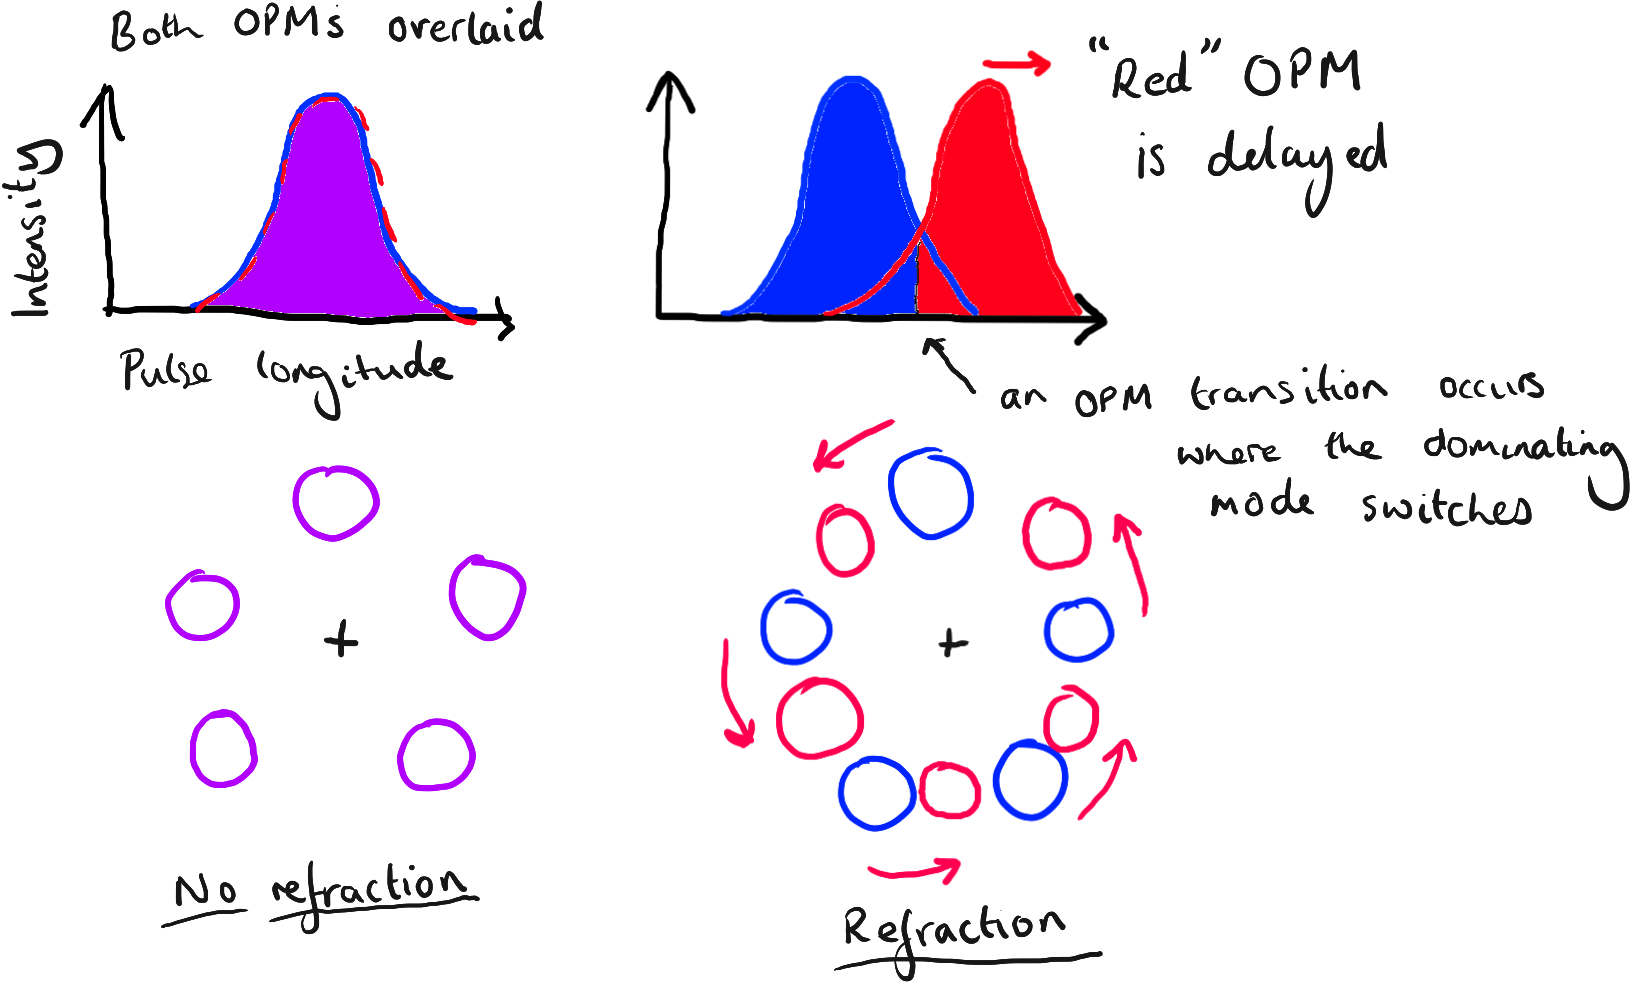 Both OPMs overlaid
Intensity
Pulse longitude
"Red" OPM
is delayed
an OPM transition occurs
where the dominating
mode switches
+
+
No refraction
Refraction